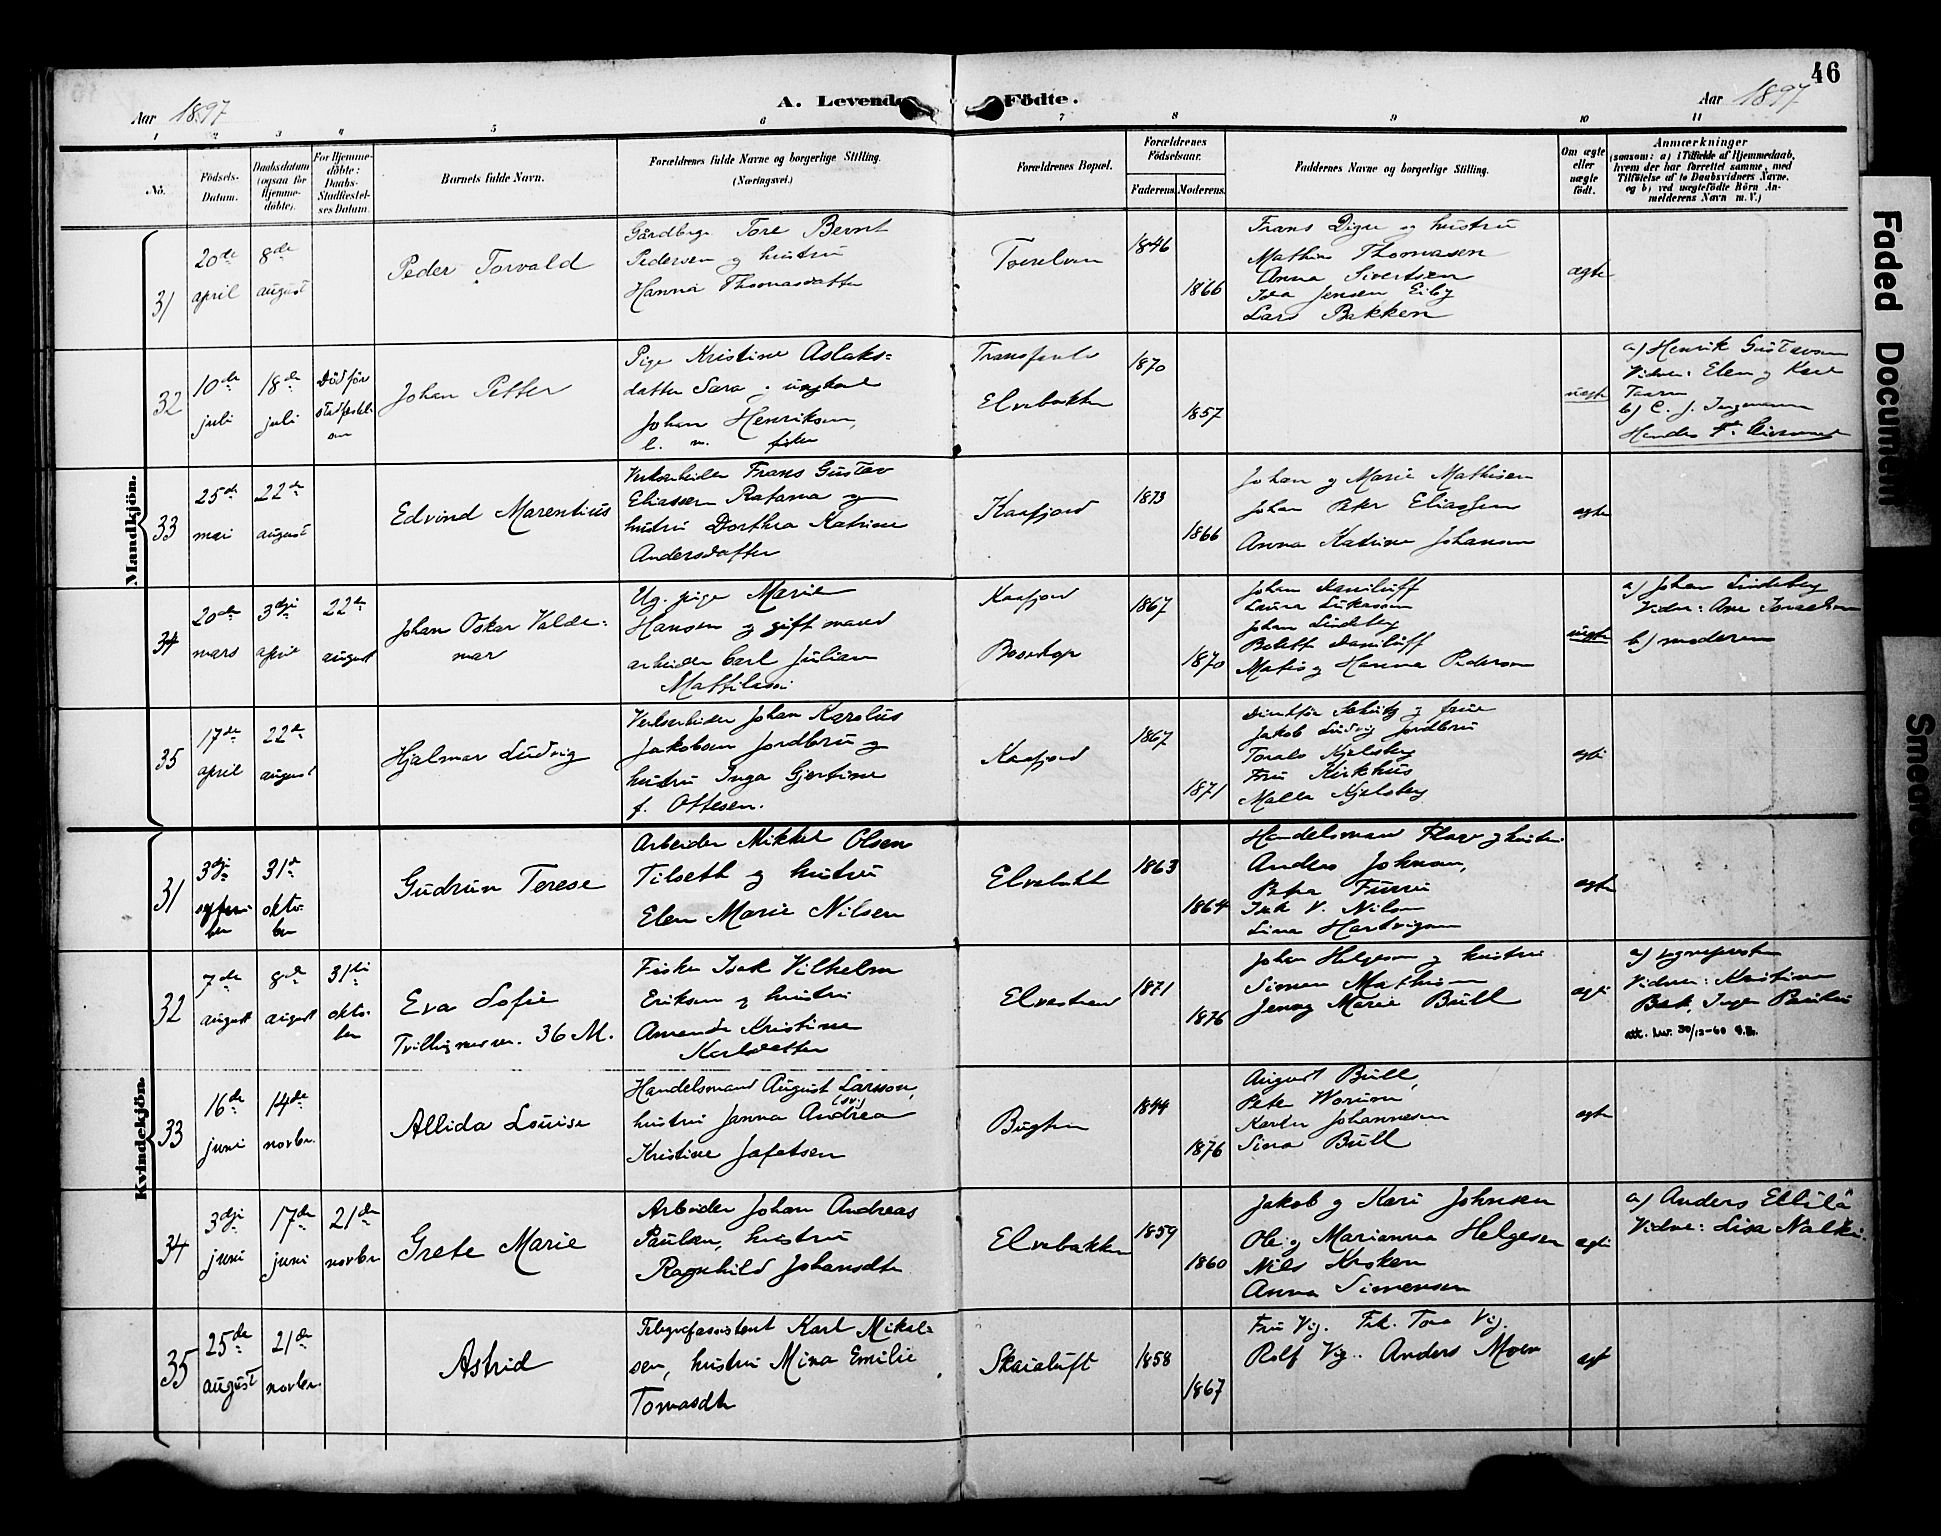 46
Aar 1897
A. Levende Födte.
Aar 1897
1 2 3 4 5 6 7 8 9 10 11
No.
Födsels-
Datum.
Daabsdatum
(ogsaa for
Hjemme-
döbte).
For Hjemme-
döbte:
Daabs-
Stadfæstel-
ses Datum.
Barnets fulde Navn.
Forældrenes fulde Navne og borgerlige Stilling.
(Næringsvei.)
Forældrenes Bopæl.
Forældrenes
Födselsaar.
Faderens. Moderens.
Faddernes Navne og borgerlige Stilling.
Om ægte
eller
uægte
födt.
Anmærkninger
(saasom: a) i Tilfælde af Hjemmedaab,
hvem der har forrettet samme, med
Tilföielse af to Daabsvidners Navne,
og b) ved uægtefödte Börn An-
melderens Navn m. V.)
Mandkjön.
31
20de
april
8de
august
Peder Torvald
Gårdbrge Tore Bernt
Pedersen og hustru
Hanna Thomasdatter
1846
1866
Frans Digre og hustru
Mathis Thomasen
Anna Sivertsen
Ida Jensen Eiby
Lars Bakken
ægte
32
10de
juli
18de
juli
Död för
stadfestel-
sen
Johan Petter
Pige Kristine Aslaks=
datter Sara og ungkarl
Johan Henriksen,
fisker
Elvebakken
1870
1857
uægte
a) Henrik Gustavsen
Vidner: Elen og Karl
b) C. J. Ingemann
33
25de
mai
22de
august
Edvind Marentius
Verksarbeider Frans Gustav
Eliassen Ratama og
hustru Dorthea Katrine
Andersdatter
Kaafjord
1873
1866
Johan og Marie Mathisen
Johan Peter Eliassen
Anna Katrine Johansen
ægte
34
20de
mars
3dji
april
22de
august
Johan Oskar Valde-
mar
Ug. pige Marie
Hansen og gift mand
arbeider Carl Julian
Mattilassi
Kaafjord
Bosekop
1867
1870
Johan Daniluff
Laura Lukassen
Johan Lindeberg
Daniluff
Mathis og Hanna Pedersen
uægte
a) Johan Lindeberg
Vidner: Ane Israelsen
b) moderen
35
17de
april
22de
august
Hjalmar Ludvig
Verksarbeider Johan Karolus
Jakobsen Jordbru og
hustru Inga Gjertine
f. Ottesen.
Kaafjord
1867
1871
Direktör Schütz og frue
Jakob Ludvig Jordbru
Toralv Kjelsberg
Fru Kirkhus
Malla Kjelsberg
ægte
Kvindekjön.
31
3dji
septem-
ber
31te
okto-
ber
Gudrun Terese
Arbeider Mikkel Olsen
Tilseth og hustru
Elen Marie Nilsen
Elvebakk
1863
1864
Handelsmand og hustru
Anders Johnsen,
Isak V. Nilsen
Lina Hartvigsen
ægte
32
7de
august
8de
august
31te
okto-
ber
Eva Sofie
Tvilling med no. 36 M.
Fisker Isak Vilhelm
Eriksen og hustru
Amanda Kristine
Karlsdatter
Elvestrand
1871
1876
Johan Helgesen og hustru
Simen Mathisen
Jenny Marie Bull
ægte
a) sognepresten
Vidner: Kristine
att. utst. 30/12-60 S.B.
33
16de
juni
14de
novbr.
Allida Louise
Handelsmand August Larsson,
(sv.)
hustru Janna Andrea
Kristine Jafetsen
Bugten
1844
1876
August Bull,
Peter Worum
Karen Johannesen
Sina Bull
ægte
34
3dji
juni
17de
juni
21de
novbr
Grete Marie
Arbeider Johan Andreas
Paulsen, hustru
Ragnhild Johansdtr
Elvebakken
1859
1860
Jakob og Kari Johnsen
Ole og Marianna Helgesen
Nils Kroken
Anna Simensen
ægte
a) Anders Ellilä
Vidne: Lisa Nalki.
35
25de
august
21de
novbr.
Astrid
Telegrafassistent Karl Mikal-
sen, hustru Mina Emilie
Tomasdtr
Skaialuft
1858
1867
Fru Vig. Frk. Tora Vig.
Rolf Vig. Anders Moen
ægt
Faded Document
Smeared